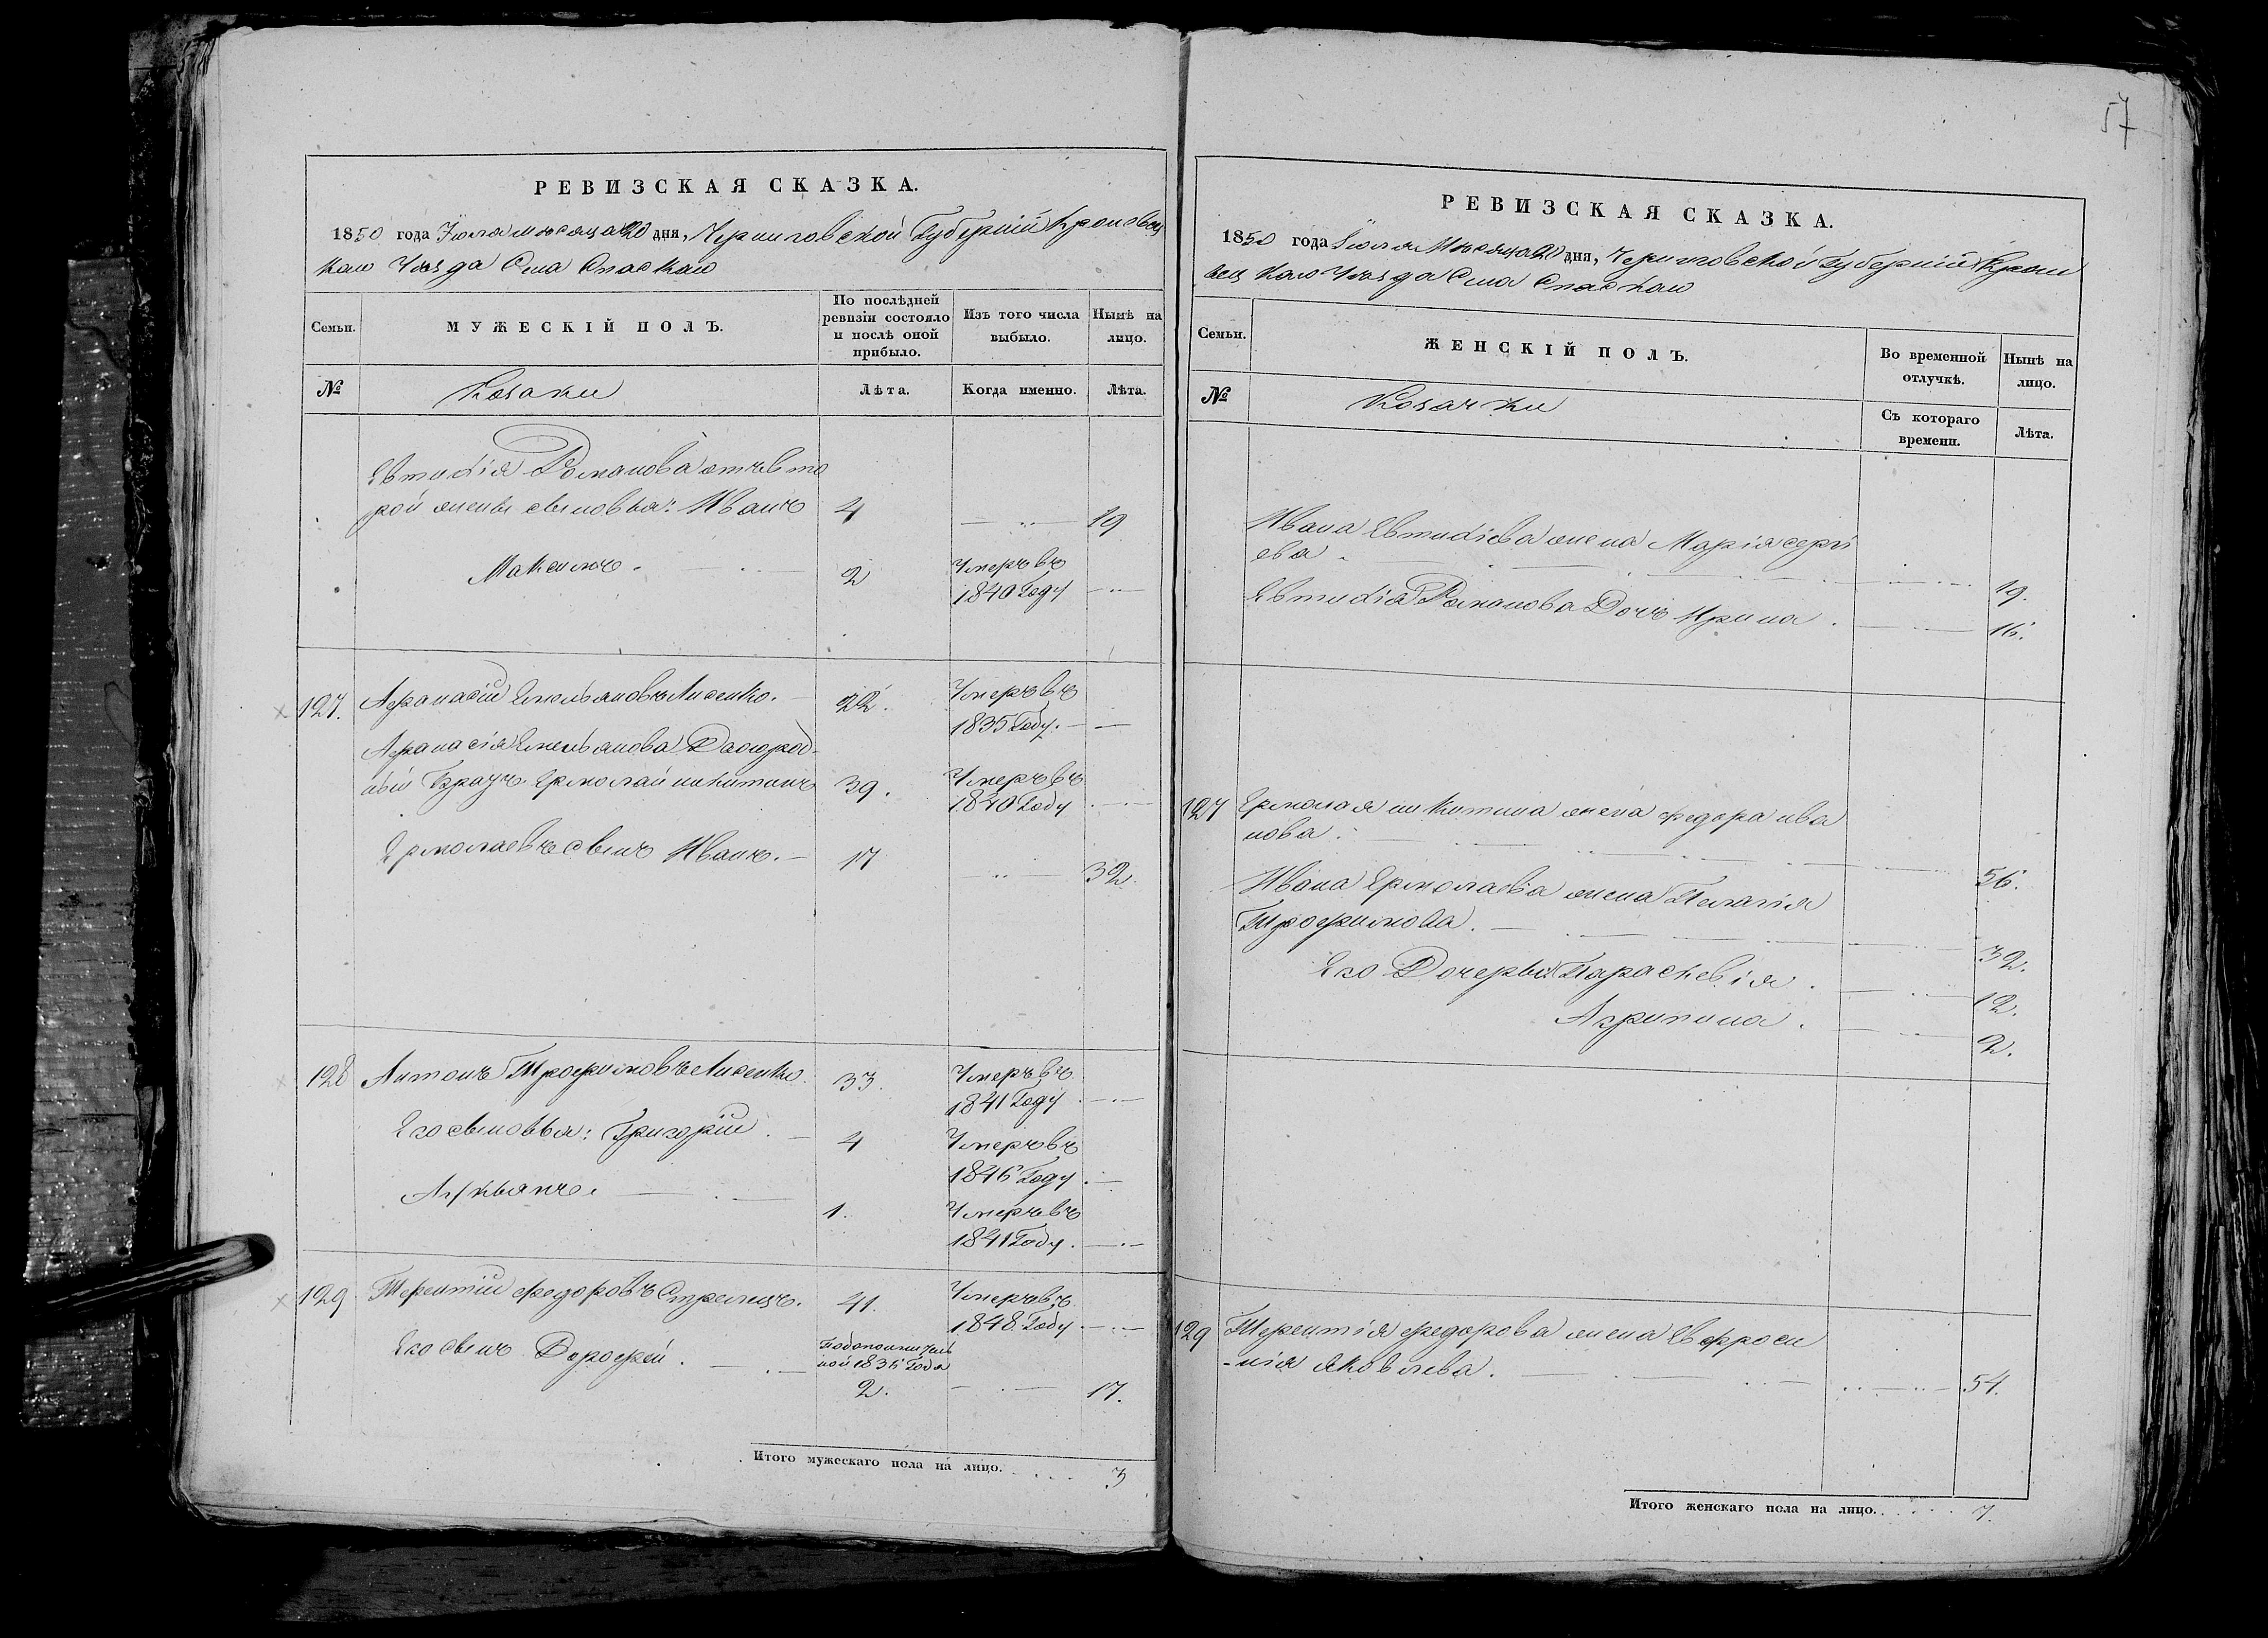 РЕВИЗСКАЯ СКАЗКА.
1850 года Июля месяца 20 дня, Черниговской Губерній Кролевец
каго Уезда Села Спаскаго
Семьи.
МУЖЕСКІЙ ПОЛЪ.
По послѣдней ревизіи состояло и послѣ оной прибыло.
Изъ того числа выбыло.
Нынѣ на лицо.
№
Козаки
Лѣта.
Когда именно.
Лѣта.
Евтихія Романова отъ вто
рой жены сыновья: Иванъ 4 19
Максимъ. 2 Умеръ въ
1840 Году
127. Афанасій Емельяновъ Лисенко. 22. Умеръ въ
1835 Году.
Афанасія Емельянова Двоюрод-
ный Братъ Ермолай Никитинъ 39. Умеръ въ
1840 Году
Ермолаевъ сынъ Иванъ. 17 32.
128 Антонъ Трофимовъ Лисенко. 33. Умеръ въ
1841 Году
Его сыновья: Григорій. 4 Умеръ въ
1846 Году
Лукьянъ. 1. Умеръ въ
1841 Году.
129 Терентій Федоровъ Стрелецъ. 41. Умеръ въ
1848 Году
Его сынъ Дорофей. По дополнитель
ной 1835 Года
2. 17.
Итого мужескаго пола на лицо. 3
57
РЕВИЗСКАЯ СКАЗКА.
1850 года Июля Месяца 20 дня, Черниговской Губерній Кроле
вец каго Уезда Села Спаскаго
Семьи.
ЖЕНСКІЙ ПОЛЪ.
Во временной отлучкѣ.
Нынѣ на лицо.
№
Козачки
Съ котораго времени.
Лѣта.
Ивана Евтихіева жена Марія Сергі
ева 19.
Евтихія Романова Дочь Ирина. 16.
127 Ермолая Никитина жена Федора Ива
нова. 56.
Ивана Ермолаева жена Пелагія
Трофимова. 32.
Его Дочерьи: Параскевія. 12.
Агрипина. 2.
129 Терентія Федорова жена Евфроси
-нія Яковлева. 54.
Итого женскаго пола на лицо. 7.